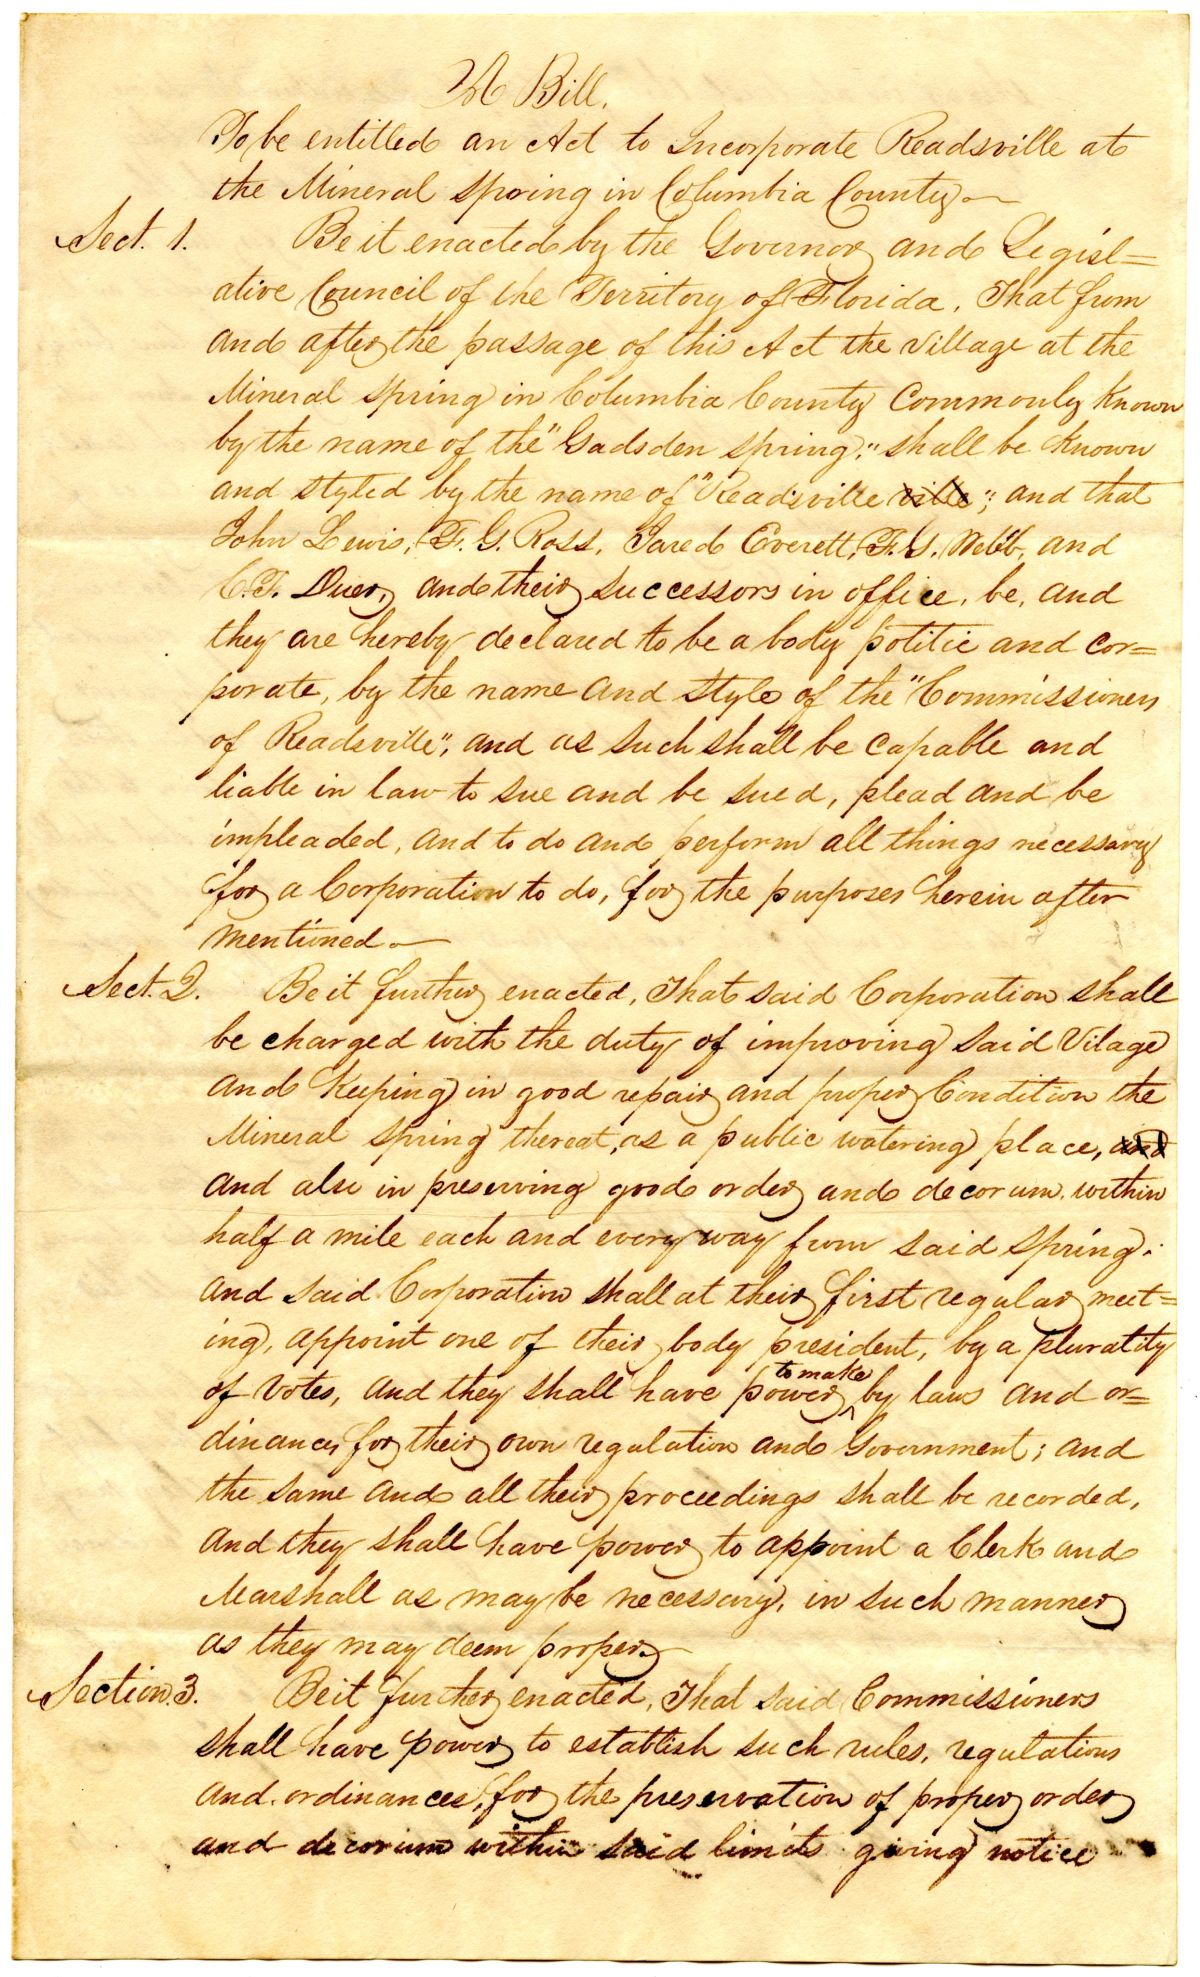 A Bill.
To be entitled an Act to Incorporate Readsville at
the Mineral Spring in Columbia County
Sect. 1. Be it enacted by the Governor and Legisl=
ative Council of the Territory of Florida, That from
and after the passage of this Act the village at the
Mineral Spring in Columbia County Commonly known
by the name of the "Gadsden Spring", shall be known
and styled by the name of "Readsville ville"; and that
John Lewis, F. G. Ross, Jared Everett, F. J. Webb, and
C. F. Duer, and their successors in office, be, and
they are hereby declared to be a body politic and cor=
porate, by the name and style of the "Commissioners
of Readsville", and as such shall be capable and
liable in law to sue and be sued, plead and be
impleaded, and to do and perform all things necessary
for a Corporation to do, for the purposes herein after
mentioned.
Sect. 2. Be it further enacted, That said Corporation shall
be charged with the duty of improving said Vilage
and keeping in good repair and proper Condition the
Mineral Spring thereat, as a public watering place, and
and also in preserving good order and decorum within
half a mile each and every way from said Spring.
and said Corporation shall at their first regular meet=
ing, appoint one of their body president, by a plurality
of votes, and they shall have power to make by laws and or=
dinances for their own regulation and Government; and
the same and all their proceedings shall be recorded,
and they shall have power to appoint a Clerk and
Marshall as may be necessary, in such manner
as they may deem proper.
Section 3. Be it further enacted, That said Commissioners
shall have power to establish such rules, regulations
and ordinances, for the preservation of proper order
and decorum within said limits giving notice